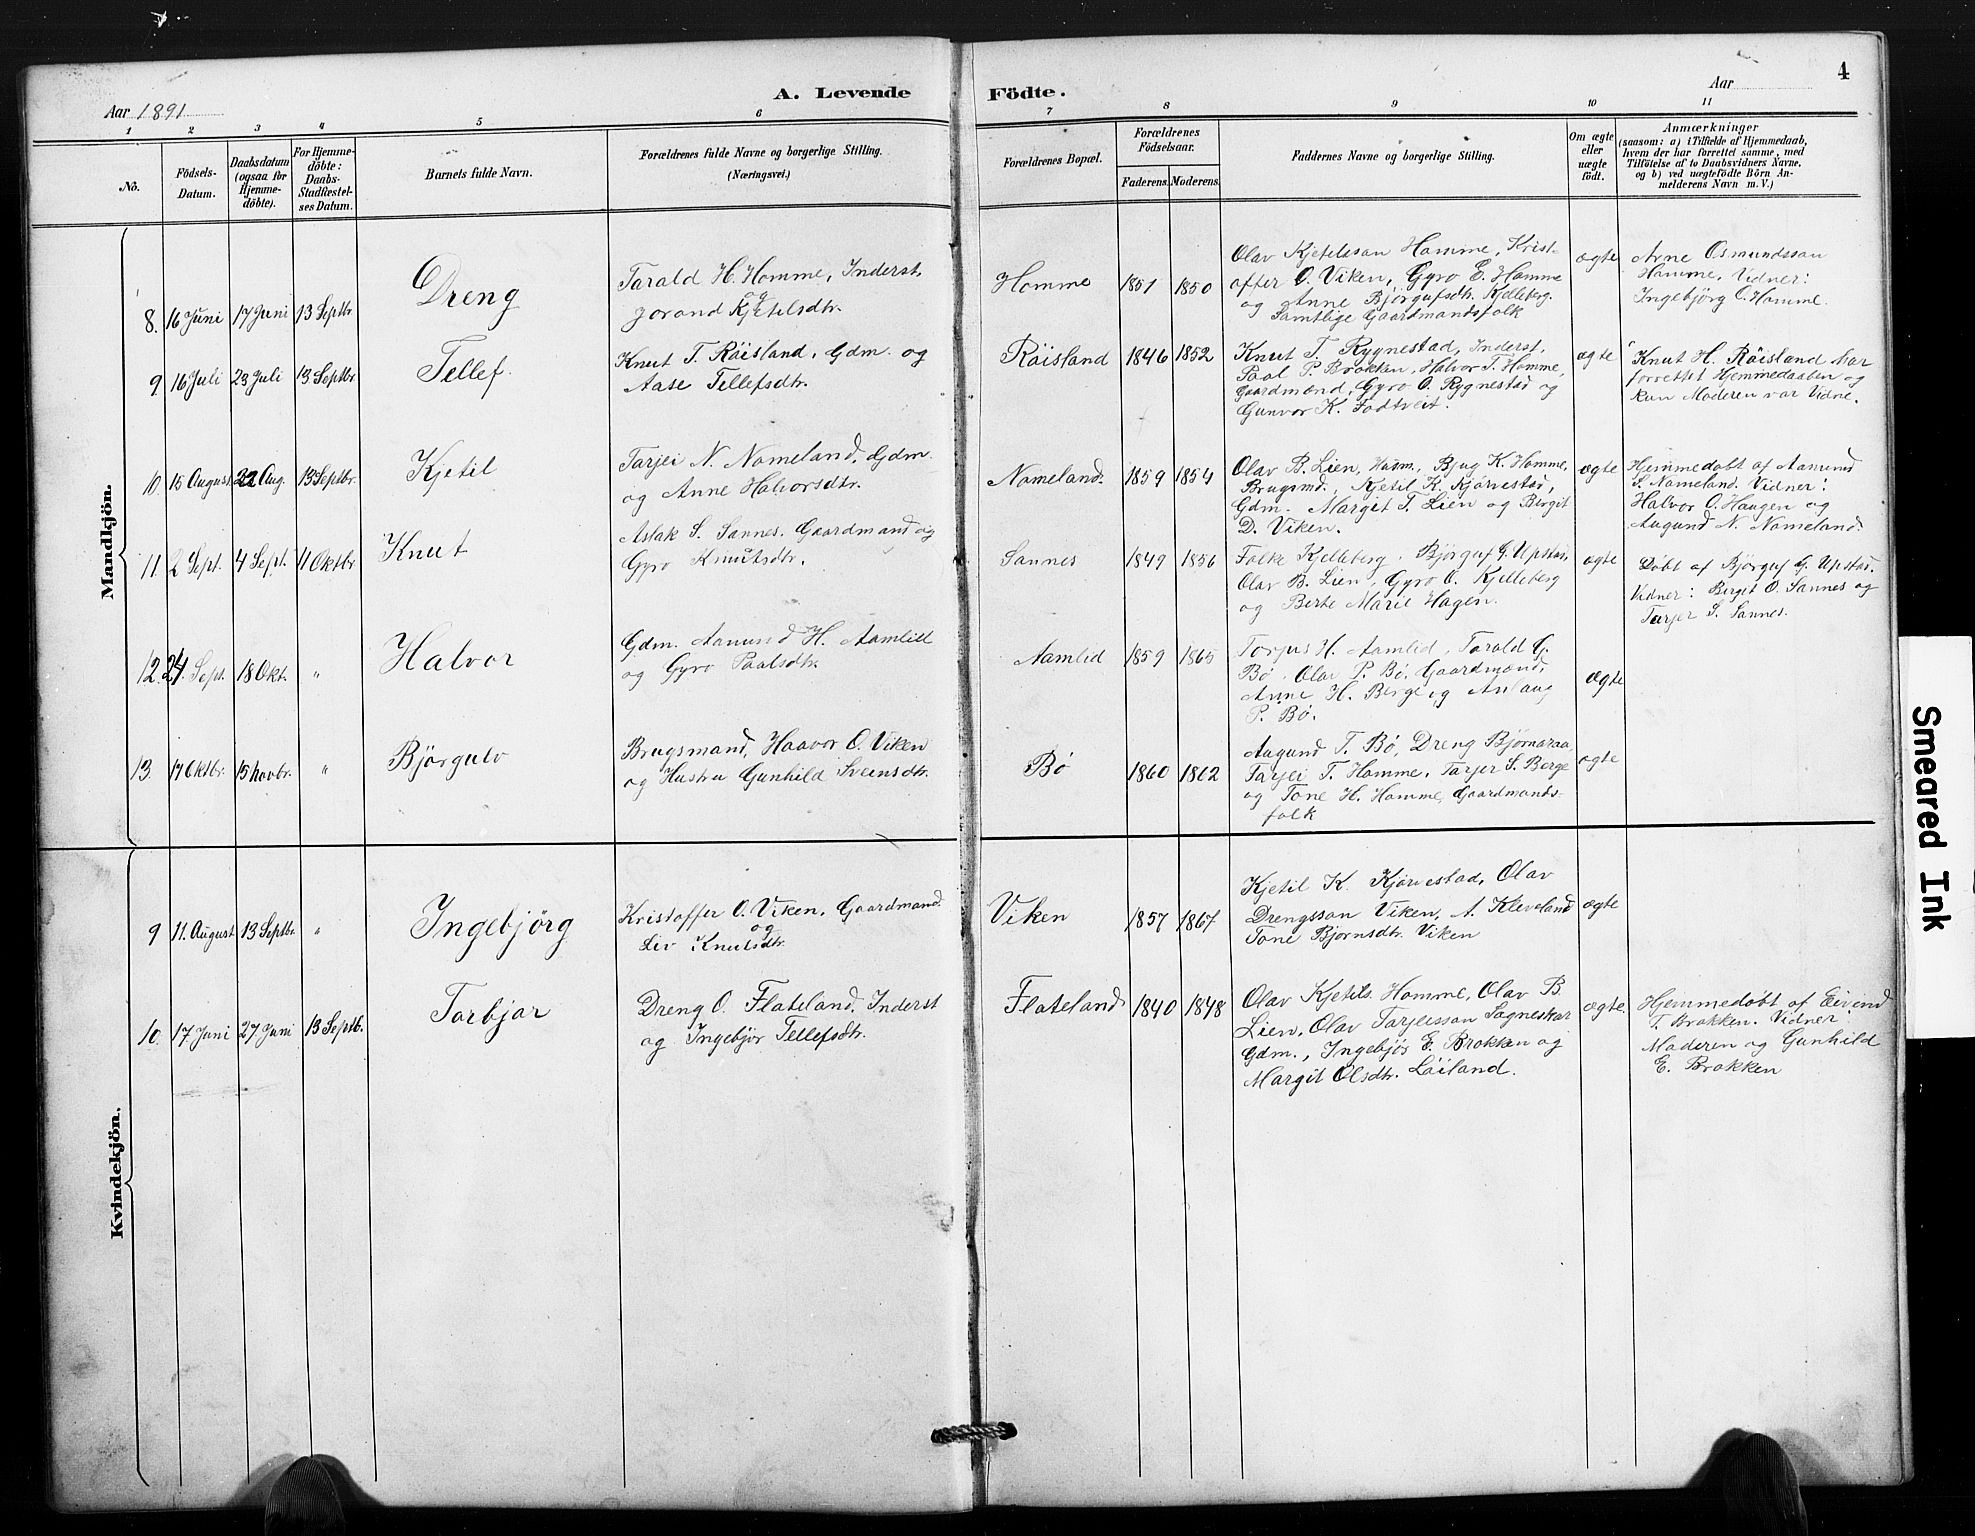 4
Aar 1891
A. Levende Födte.
Aar
1 2 3 4 5 6 7 8 9 10 11
No.
Födsels-
Datum.
Daabsdatum
(ogsaa for
Hjemme-
döbte).
For Hjemme-
döbte:
Daabs-
Stadfæstel-
ses Datum.
Barnets fulde Navn.
Forældrenes fulde Navne og borgerlige Stilling.
(Næringsvei.)
Forældrenes Bopæl.
Forældrenes
Födselsaar.
Faderens. Moderens.
Faddernes Navne og borgerlige Stilling.
Om ægte
eller
uægte
födt.
Anmærkninger
(saasom: a) i Tilfælde af Hjemmedaab,
hvem der har forrettet samme, med
Tilföielse af to Daabsvidners Navne,
og b) ved uægtefödte Börn An-
melderens Navn m. V.)
Mandkjön.
8. 16 Juni 17 Juni 13 Septbr
Dreng
Tarald H. Homme, Inderst,
og
Jorand Kjetelsdtr.
Homme 1851 1850
Olav Kjetelsson Homme, Krist-
offer O. Viken, Gyro E. Homme
og Anne Björgufsdtr. Kjelleberg.
Samtlige Gaardmandsfolk
ægte
Arne Osmundsson
Homme, Vidner:
Ingebjörg O. Homme.
9. 16 Juli 23 Juli 13 Septbr
Tellef.
Knut T. Röisland, Gdm. og
Aase Tellefsdtr.
Röisland 1846 1852
Knut T. Rygnestad, Inderst,
Paal P. Brokken, Halvor T. Homme,
Gaardmænd, Gyro O. Rygnestad og
Gunvor K. Fodtveit.
ægte
Knut H. Röisland har
forrettet Hjemmedaaben og
kun Moderen var Vidne.
10. 15 August 22 Aug. 13 Septbr.
Kjetil
Tarjei N. Nomeland, Gdm.
og Anne Halvorsdtr.
Nomeland. 1859 1854
Olav B. Lien, Husm., Bjug K. Homme,
Brugsmd., Kjetil K. Kjörvestad,
Gdm. Margit T. Lien og Birgit
D. Viken.
ægte
Hjemmedøbt af Aamund
S. Nomeland. Vidner:
Halvor O. Haugen og
Aagund N. Nomeland.
11. 2 Sept. 4 Sept. 11 Oktbr
Knut
Aslak S. Sannes, Gaardmand og
Gyro Knutsdtr.
Sannes 1849 1856
Folke Kjelleberg, Björguf G. Upstad,
Olav B. Lien, Gyro O. Kjelleberg
og Berte Marie Hagen.
ægte
Døbt af Björguf G. Upstad.
Vidner: Birgit O. Sannes og
Tarjer S. Sannes.
12. 24. Sept. 18 Okt. "
Halvor
Gdm. Aamund H. Aamlid
og Gyro Paalsdtr.
Aamlid 1859 1865
Torjus H. Aamlid, Tarald G.
Bø, Olav P. Bø, Gaardmænd,
Anne H. Berge og Aslaug
P. Bø.
ægte
13. 17 Oktbr. 15 Novbr. "
Björgulv
Brugsmand, Haavor O. Viken
og Hustru Gunhild Sveinsdtr.
Bø 1860 1862
Aagund T. Bø, Dreng Björnaraa,
Tarjei T. Homme, Tarjer S. Berge
og Tone H. Homme, Gaardmands-
folk
ægte
Kvindekjön.
9 11. August 13 Septbr. "
Ingebjörg
Kristoffer O. Viken, Gaardmand
og
Liv Knutsdtr.
Viken 1857 1867
Kjetil K. Kjörvestad, Olav
Drengsson Viken, A. Kleveland
Tone Bjornsdtr. Viken
ægte
10. 17 Juni 27 Juni 13 Septb.
Torbjør
Dreng O. Flateland, Inderst
og Ingebjör Tellefsdtr.
Flateland 1840 1848
Olav Kjetils. Homme, Olav B.
Lien, Olav Tarjeisson Sagneskar
Gdm., Ingebjör E. Brokken og
Margit Olsdtr. Löiland.
ægte.
Hjemmedøbt af Eivind
T. Brokken. Vidner:
Moderen og Gunhild
E. Brokken
Smeared Ink